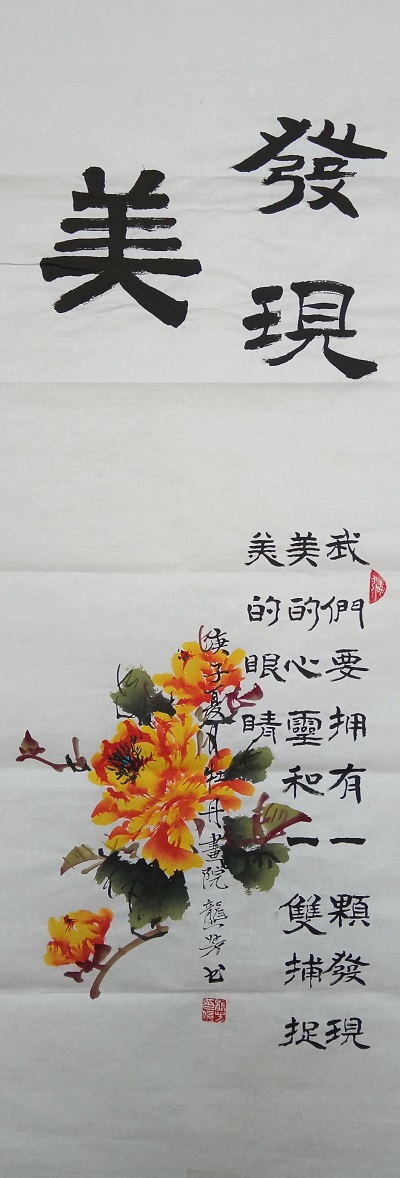 發現
美
我們要拥有一顆發現
美的心靈和一雙捕捉
美的眼睛
庚子夏月牡丹畫院龔芳书